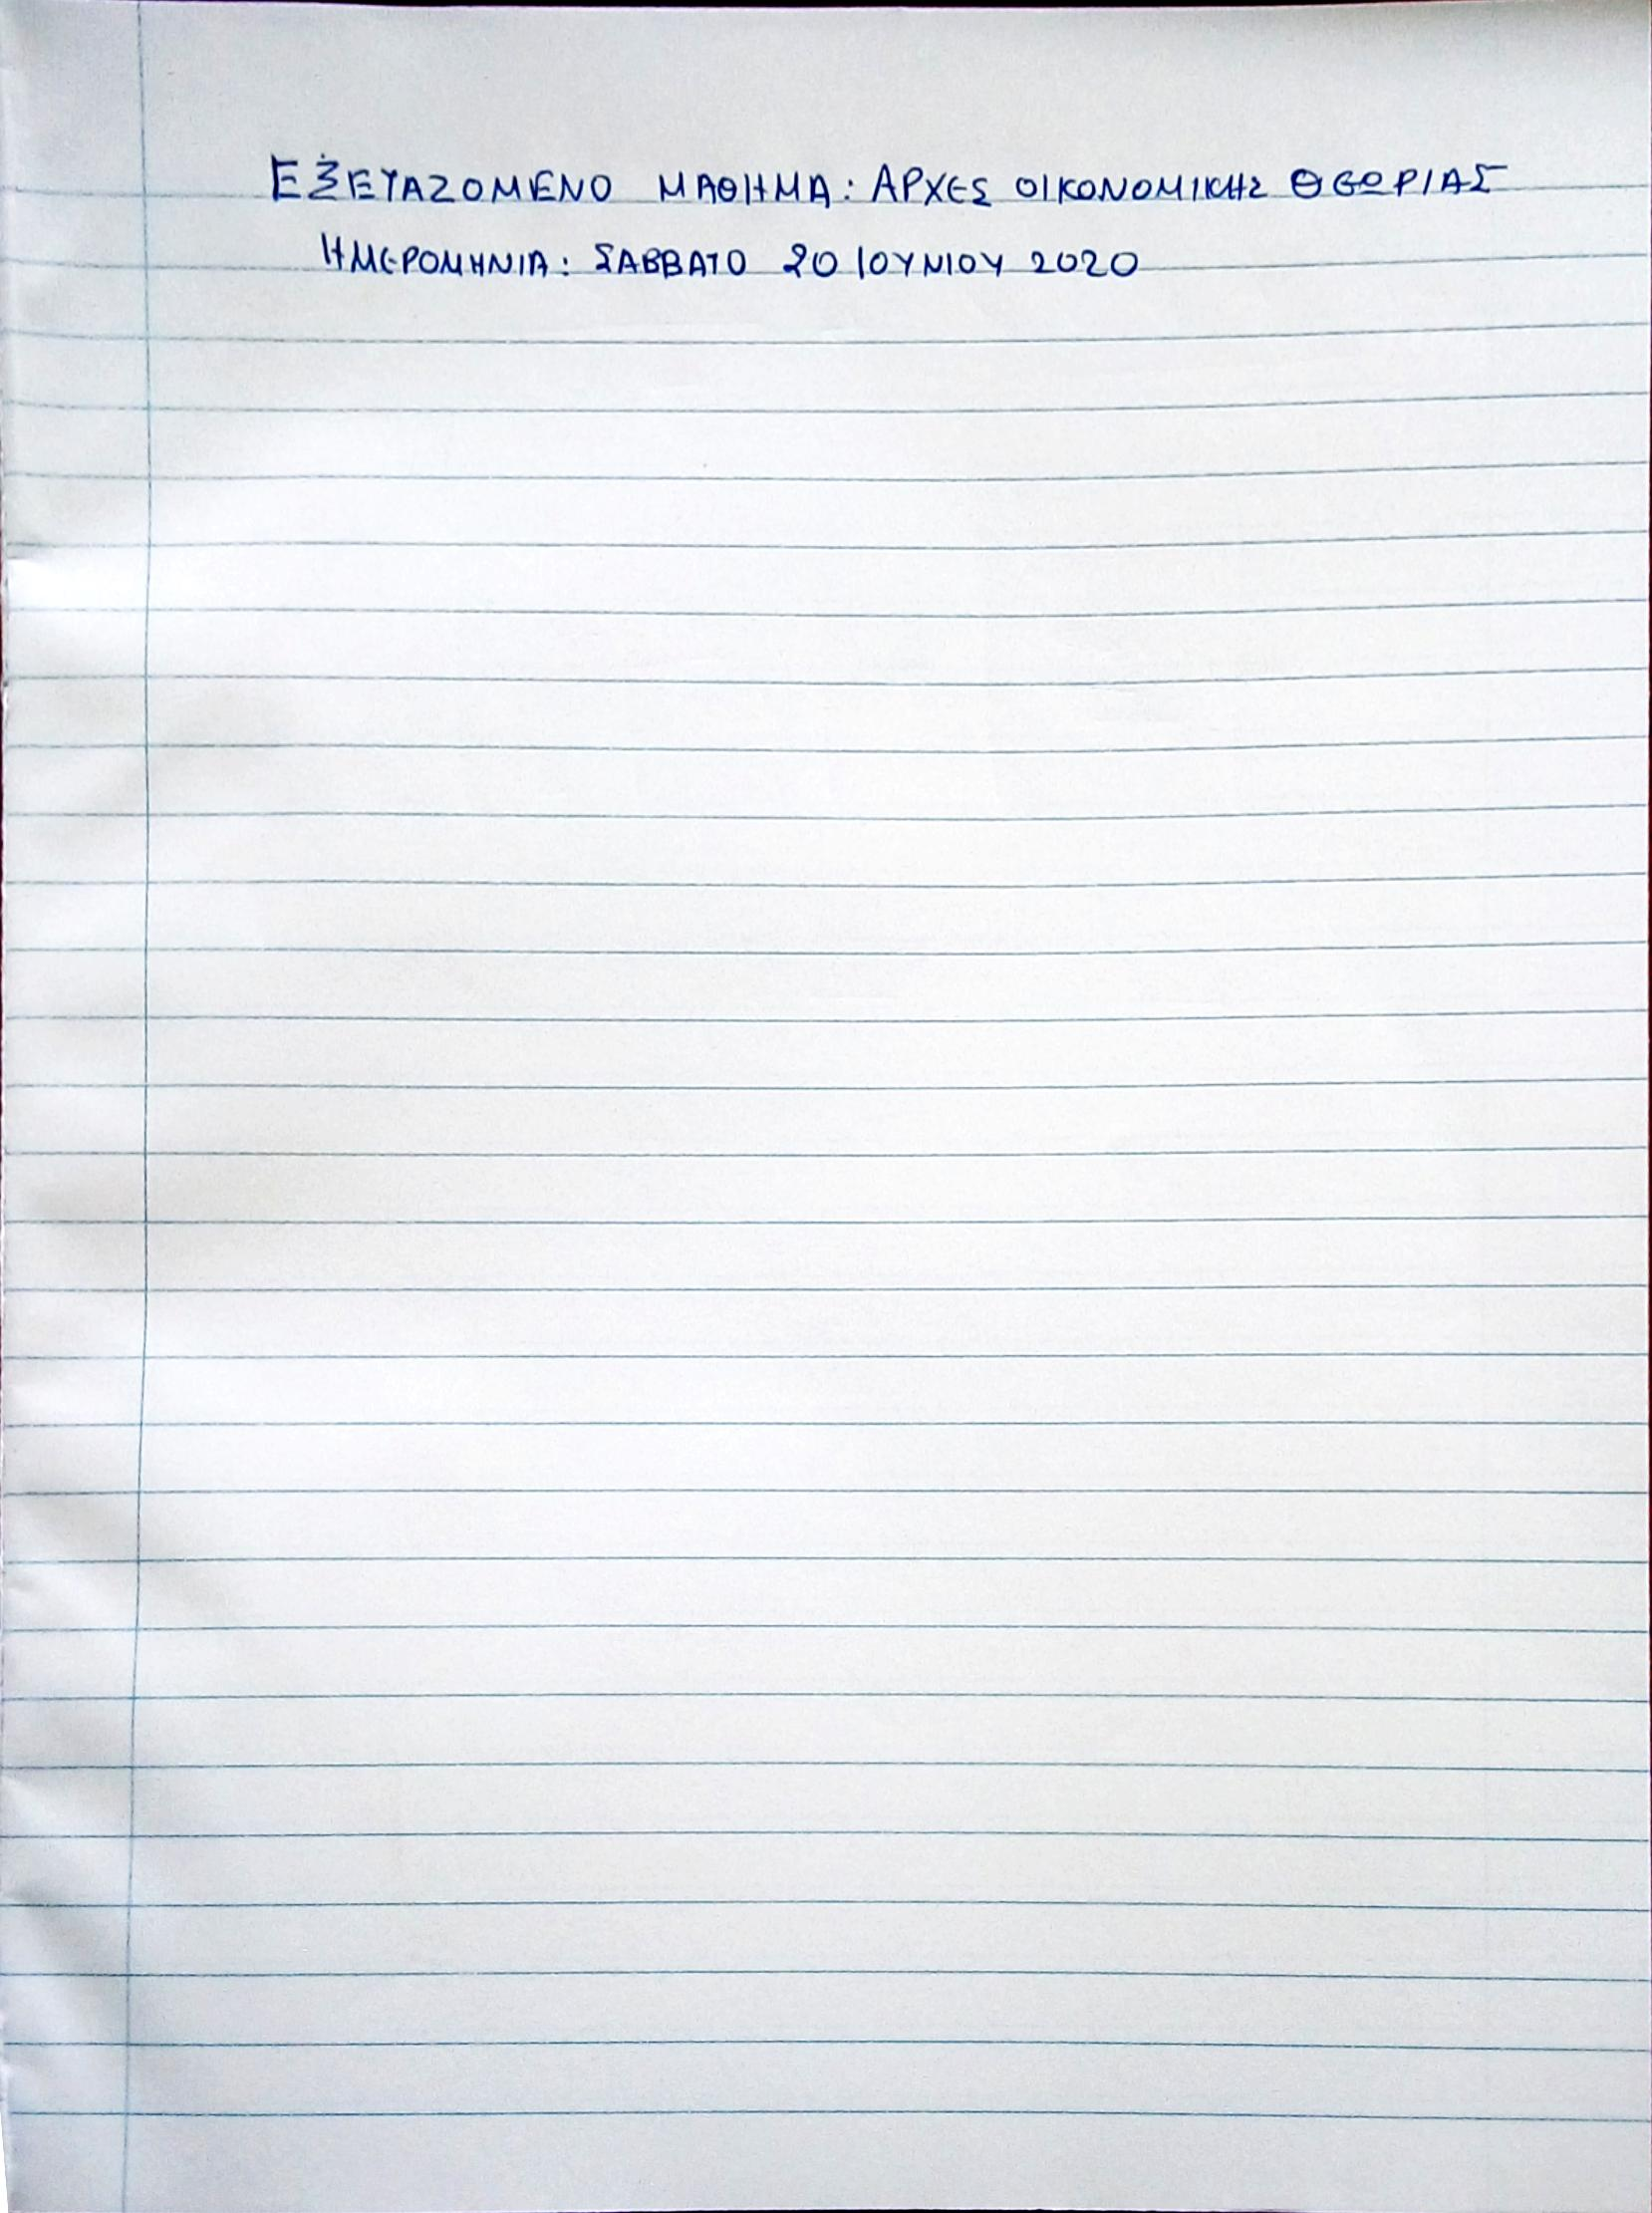 ΕΞΕΤΑΖΟΜΕΝΟ ΜΑΘΗΜΑ: ΑΡΧΕΣ ΟΙΚΟΝΟΜΙΚΗΣ ΘΕΩΡΙΑΣ
ΗΜΕΡΟΜΗΝΙΑ: ΣΑΒΒΑΤΟ 20 ΙΟΥΝΙΟΥ 2020